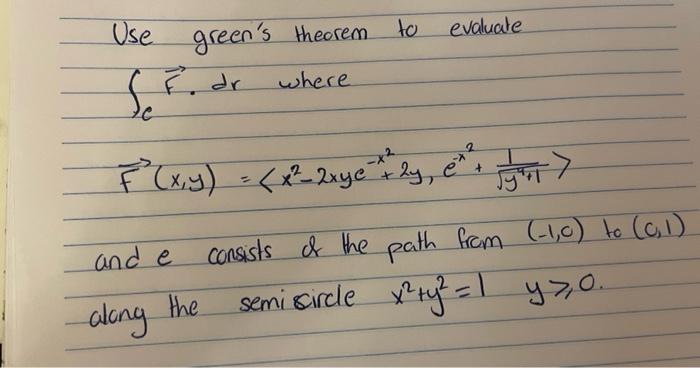 Use green's theorem to evaluate
∫c F⃗ . dr where
F⃗ (x,y) = <x²-2xye^(-x²) + 2y, e^(-x²) + 1/√(y⁴+1)>
and c consists of the path from (-1,0) to (0,1)
along the semicircle x²+y²=1 y⩾0.